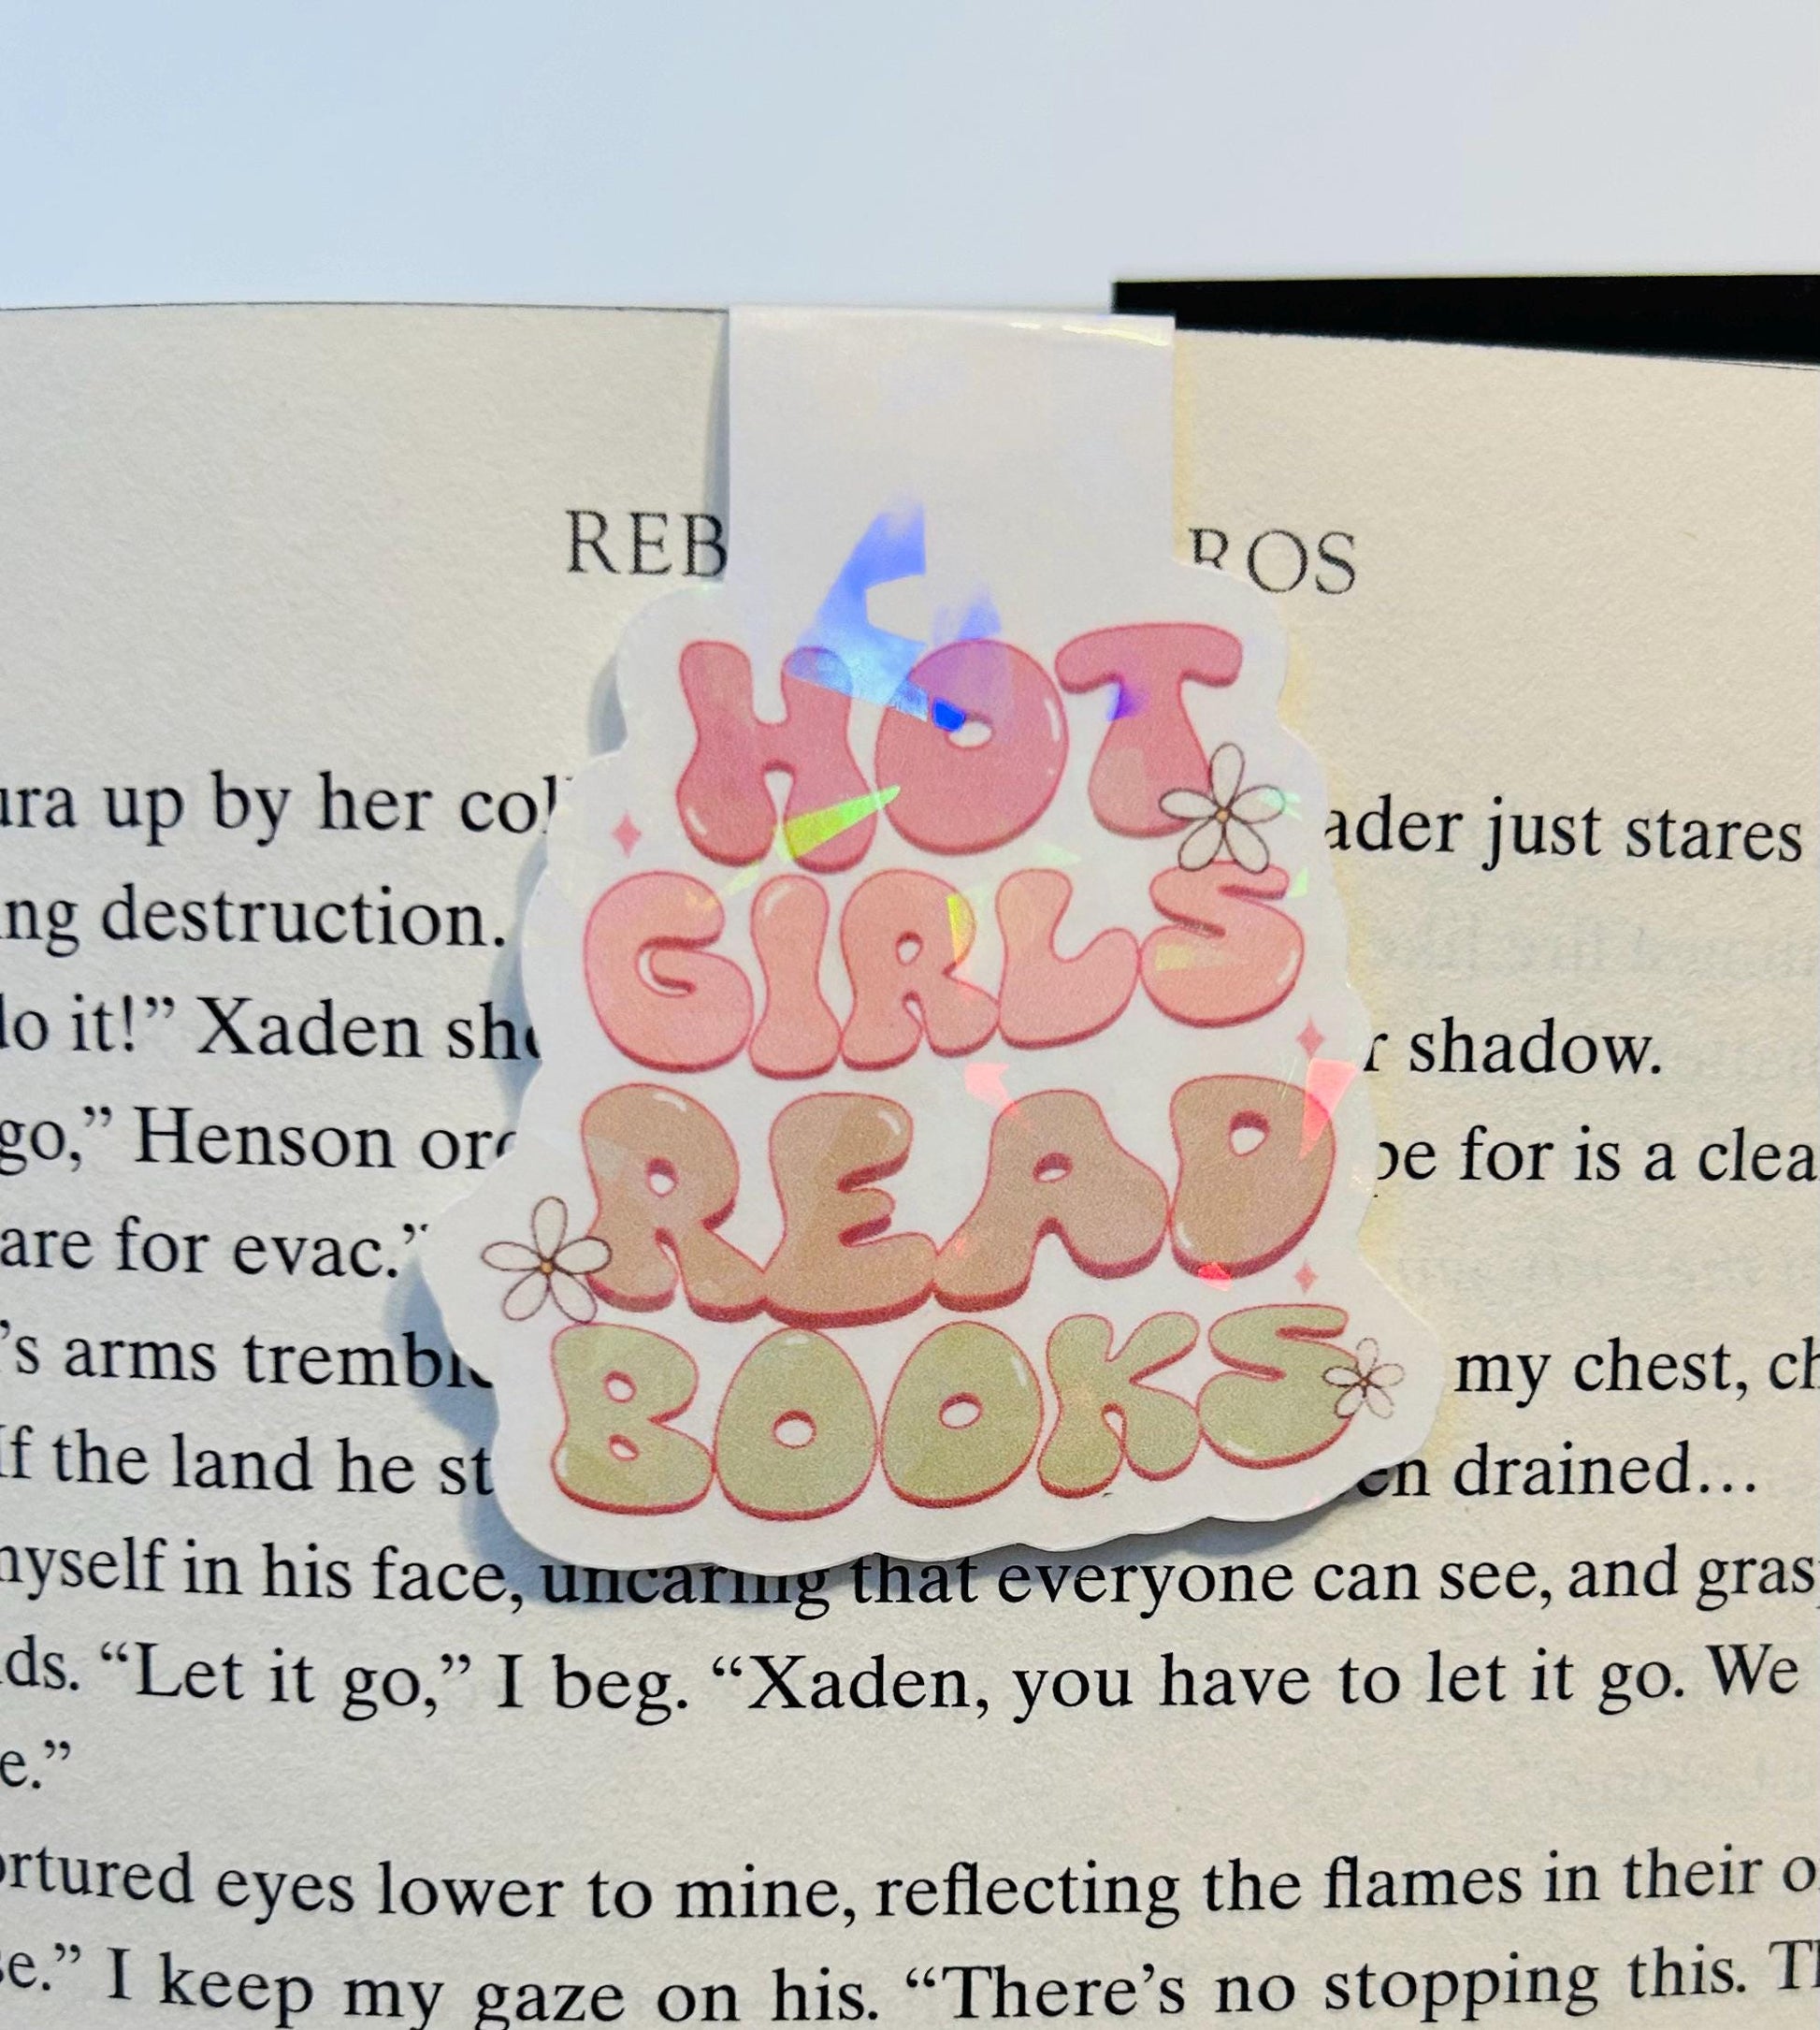 REB ROS
HOT
GIRLS
READ
BOOKS
up by her just stares
destruction.
it!” Xaden shadow.
go,” Henson for is a
for evac.”
arms my chest,
the land he drained...
in his face, uncaring that everyone can see, and
“Let it go,” I beg. “Xaden, you have to let it go. We
eyes lower to mine, reflecting the flames in their
I keep my gaze on his. “There’s no stopping this.